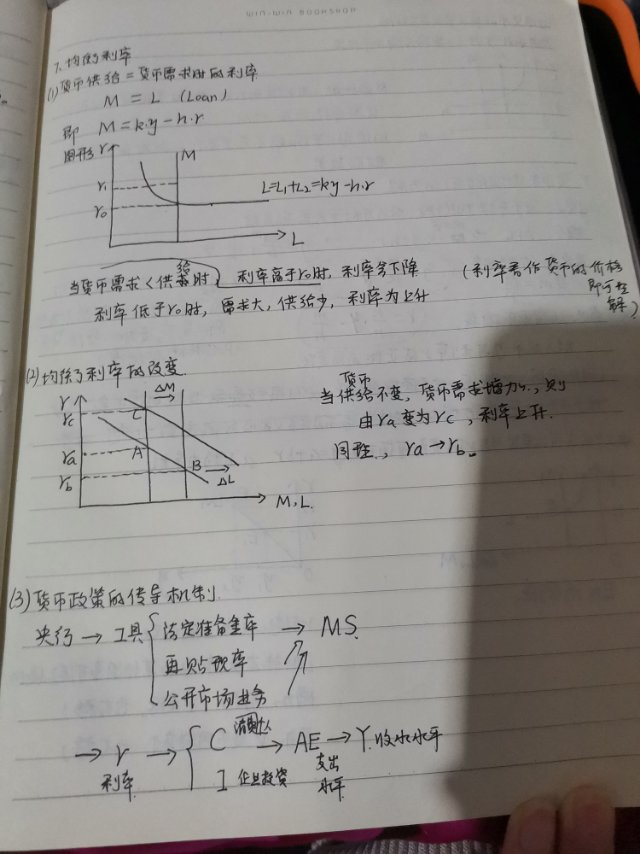 WIN-WIN BOOKSHOP
7. 均衡利率
(1) 货币供给 = 货币需求时的利率
M = L (Loan)
即 M = k·y - h·r
图形 r
M
r₁
r₀
L=L₁+L₂=ky-h·r
L
当货币需求<供给时, 利率高于r₀时, 利率会下降 (利率看作货币的价格
即可理
解)
利率低于r₀时, 需求大, 供给少, 利率为上升
(2) 均衡利率的改变
r
ΔM
rc
C
ra
A
rb
B
ΔL
M, L.
货币
当供给不变, 货币需求增加, 则
由ra变为rc, 利率上升.
同理, ra→rb。
(3) 货币政策的传导机制.
央行 → 工具 { 法定准备金率 → MS.
再贴现率
公开市场业务
→ r → { C 消费 → AE → Y. 收入水平
利率 I 企业投资 支出
水平